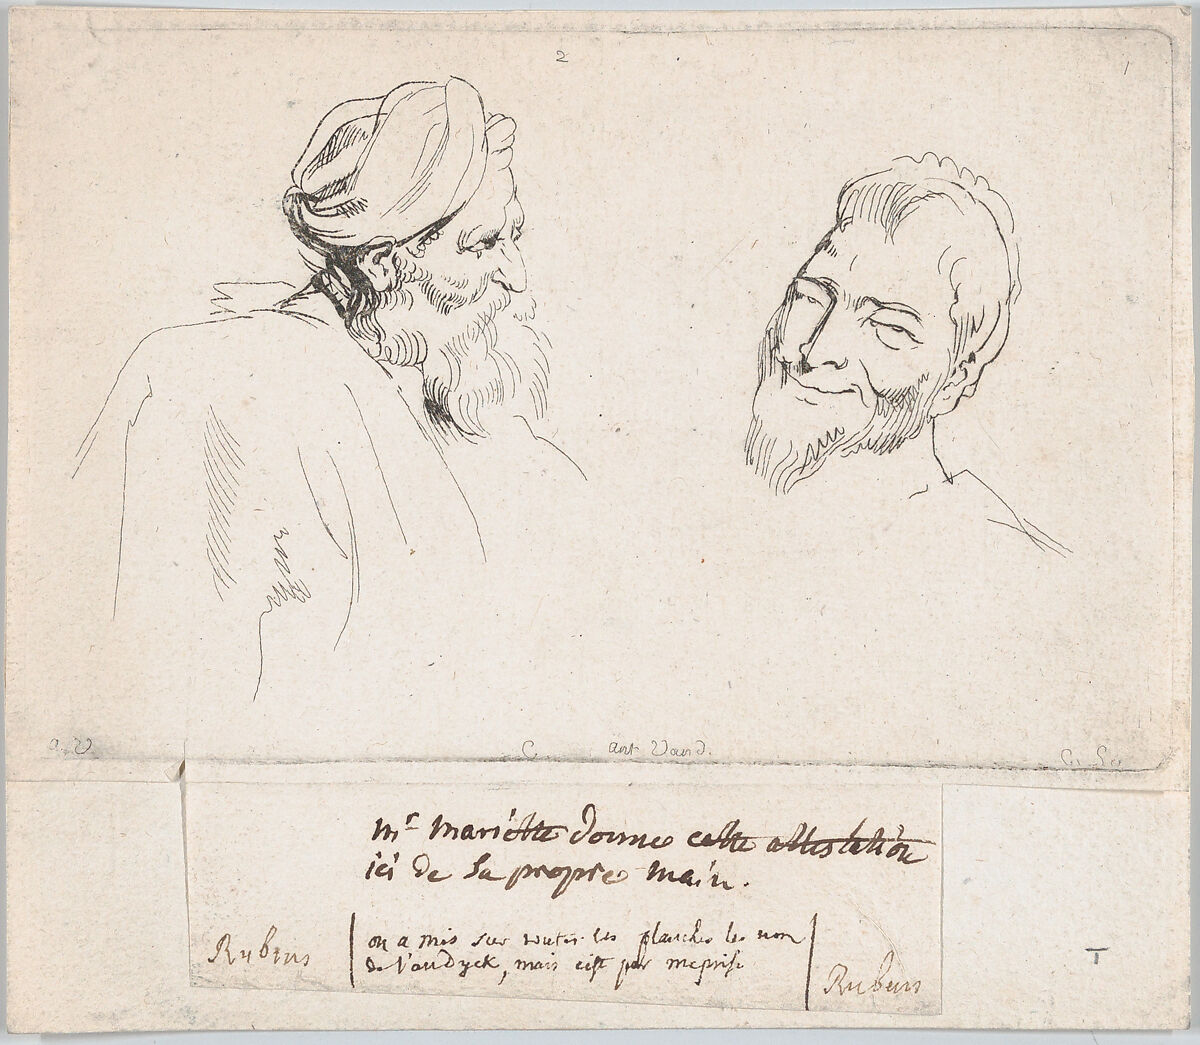 2 1
a. V C ant Vand. C. Sc
mr Mariette donne cette attestation
ici de sa propre main.
on a mis sur toutes les planches le nom
de Vandyck, mais c'est par meprise
Rubens Rubens
T